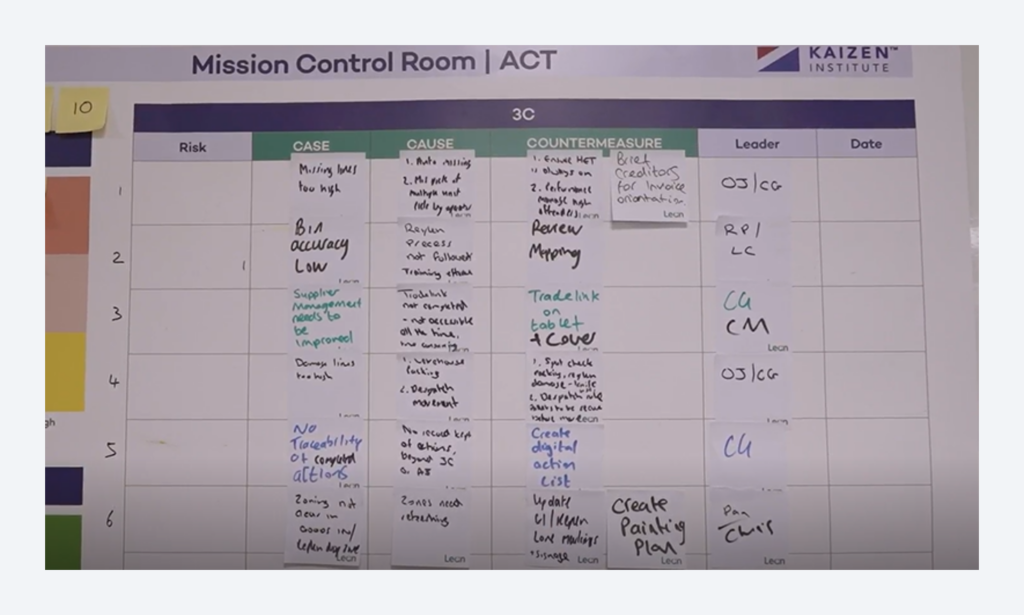 Mission Control Room | ACT
KAIZEN™
INSTITUTE
10
3C
Risk
CASE
CAUSE
COUNTERMEASURE
Leader
Date
1
Missing lines
too high
1. Auto missing
2. Mis pick at
multiple
1. Ensure HET
is always on
2. Performance
manage high
offenders
Lean
Brief
Creditors
for invoice
orientation
Lean
OJ/CG
2
Bin
accuracy
Low
Lean
Replen
Process
not followed
Training
Lean
Review
Mapping
RP/
LC
3
Supplier
Management
needs to
be
improved
Tradelink
not completed
- not accessible
all the time,
Lean
Tradelink
on
tablet
+ Cover
Lean
CG
CM
Lean
4
Damage lines
too high
Lean
1. Warehouse
2. Despatch
movement
Lean
1. Spot check
damage -
2. Despatch
Lean
OJ/CG
Lean
5
No
Traceability
of completed
actions
Lean
No record kept
of actions,
beyond 3C
or A3
Create
digital
action
List
CG
6
Zoning not
clear in
Goods in/
Lean
Zones need
refreshing
Lean
Update
GI/Replen
Lane Markings
+ signage
Lean
Create
Painting
Plan
Lean
Dan
Chris
Lean
gh